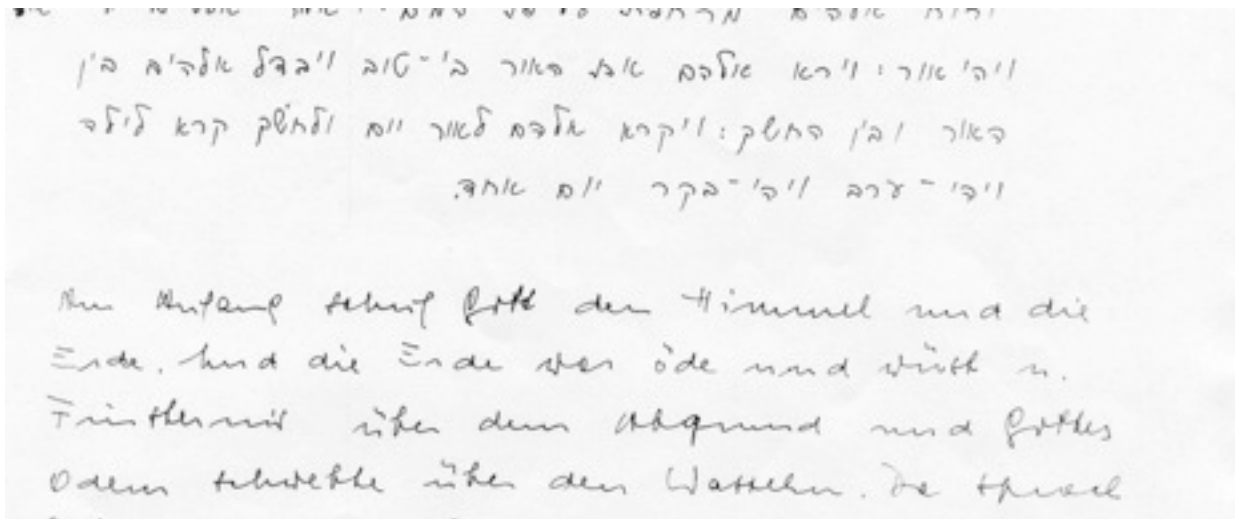 ורוח אלהים מרחפת
ויהי אור : וירא אלהם את האור כי־טוב ויבדל אלהים בין
האור ובין החשך : ויקרא אלהם לאור יום ולחשך קרא לילה
ויהי־ערב ויהי־בקר יום אחד.
Am Anfang schuf Gott den Himmel und die
Erde. Und die Erde war öde und wüst u.
Finsternis über dem Abgrund und Gottes
Odem schwebte über den Wassern. Da sprach